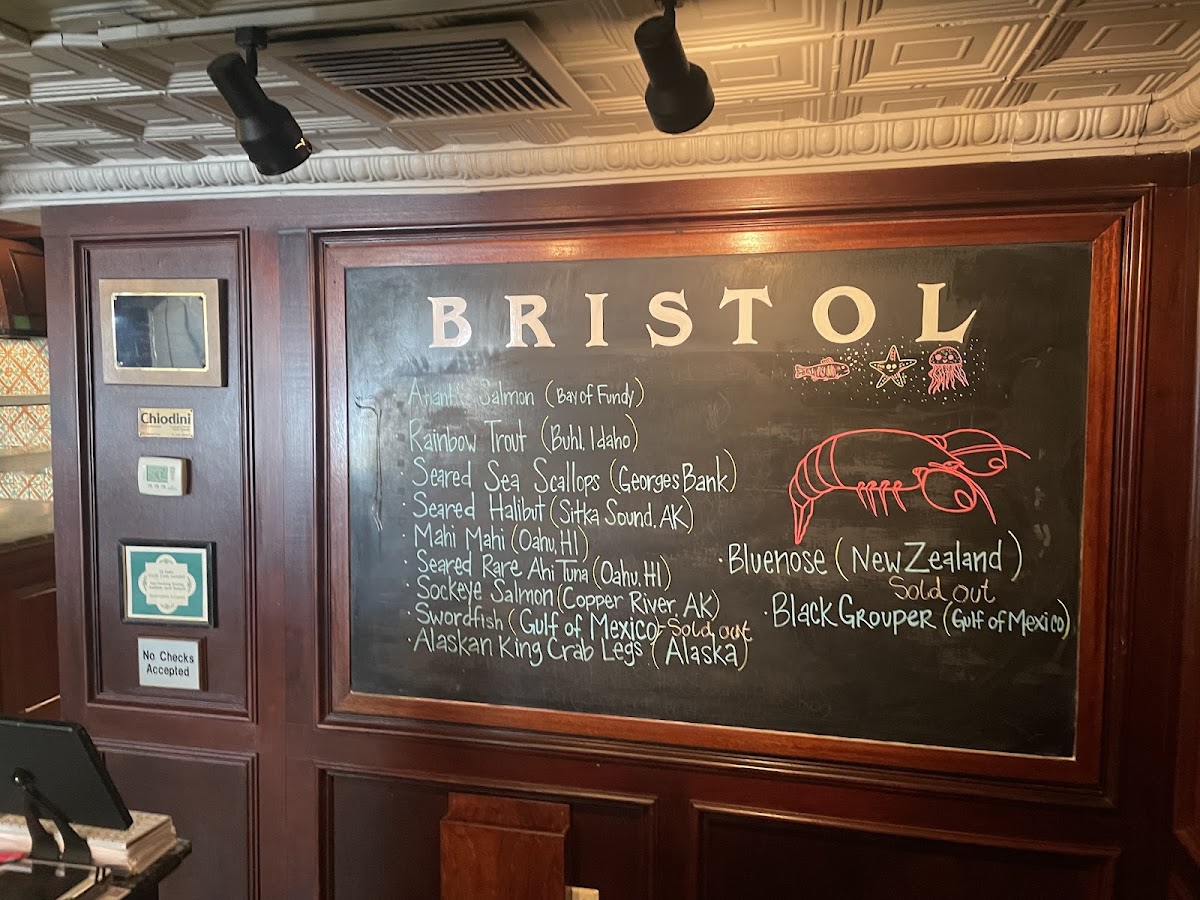 BRISTOL
Atlantic Salmon (Bay of Fundy)
Rainbow Trout (Buhl, Idaho)
Seared Sea Scallops (Georges Bank)
· Seared Halibut (Sitka Sound, AK)
· Mahi Mahi (Oahu, HI)
· Seared Rare Ahi Tuna (Oahu, HI)
· Sockeye Salmon (Copper River, AK)
· Swordfish (Gulf of Mexico- Sold out
· Alaskan King Crab Legs (Alaska)
· Bluenose (New Zealand)
Sold out
· Black Grouper (Gulf of Mexico)
Chiodini
No Checks
Accepted